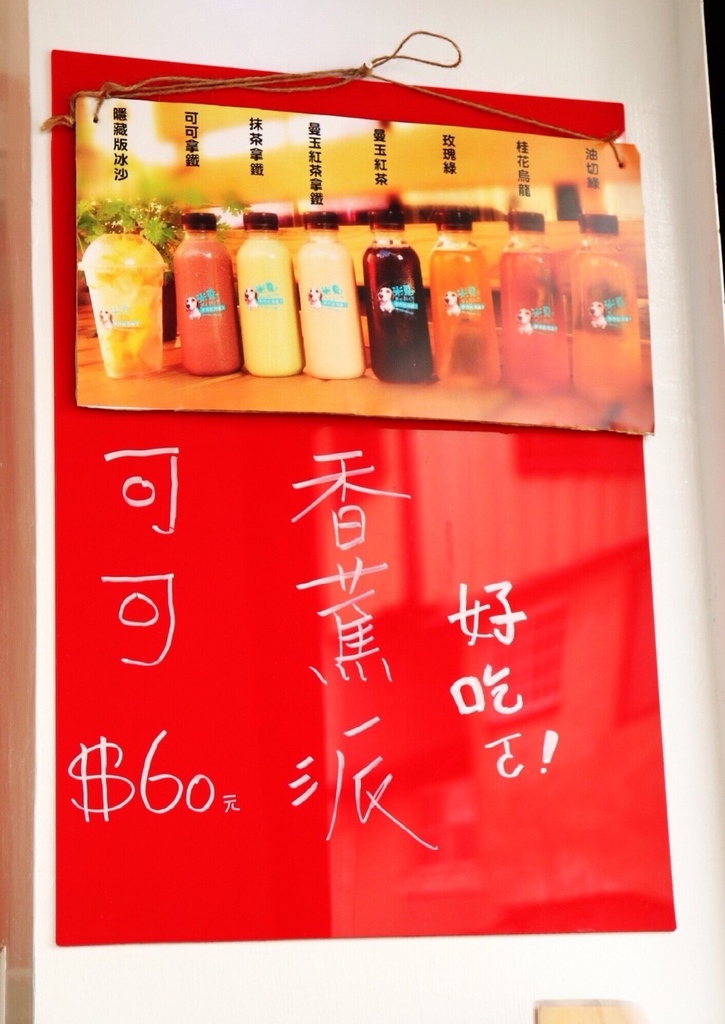 油切綠
桂花烏龍
玫瑰綠
曼玉紅茶
曼玉紅茶拿鐵
抹茶拿鐵
可可拿鐵
隱藏版冰沙
好吃
ㄛ!
香蕉派
可可
$60元